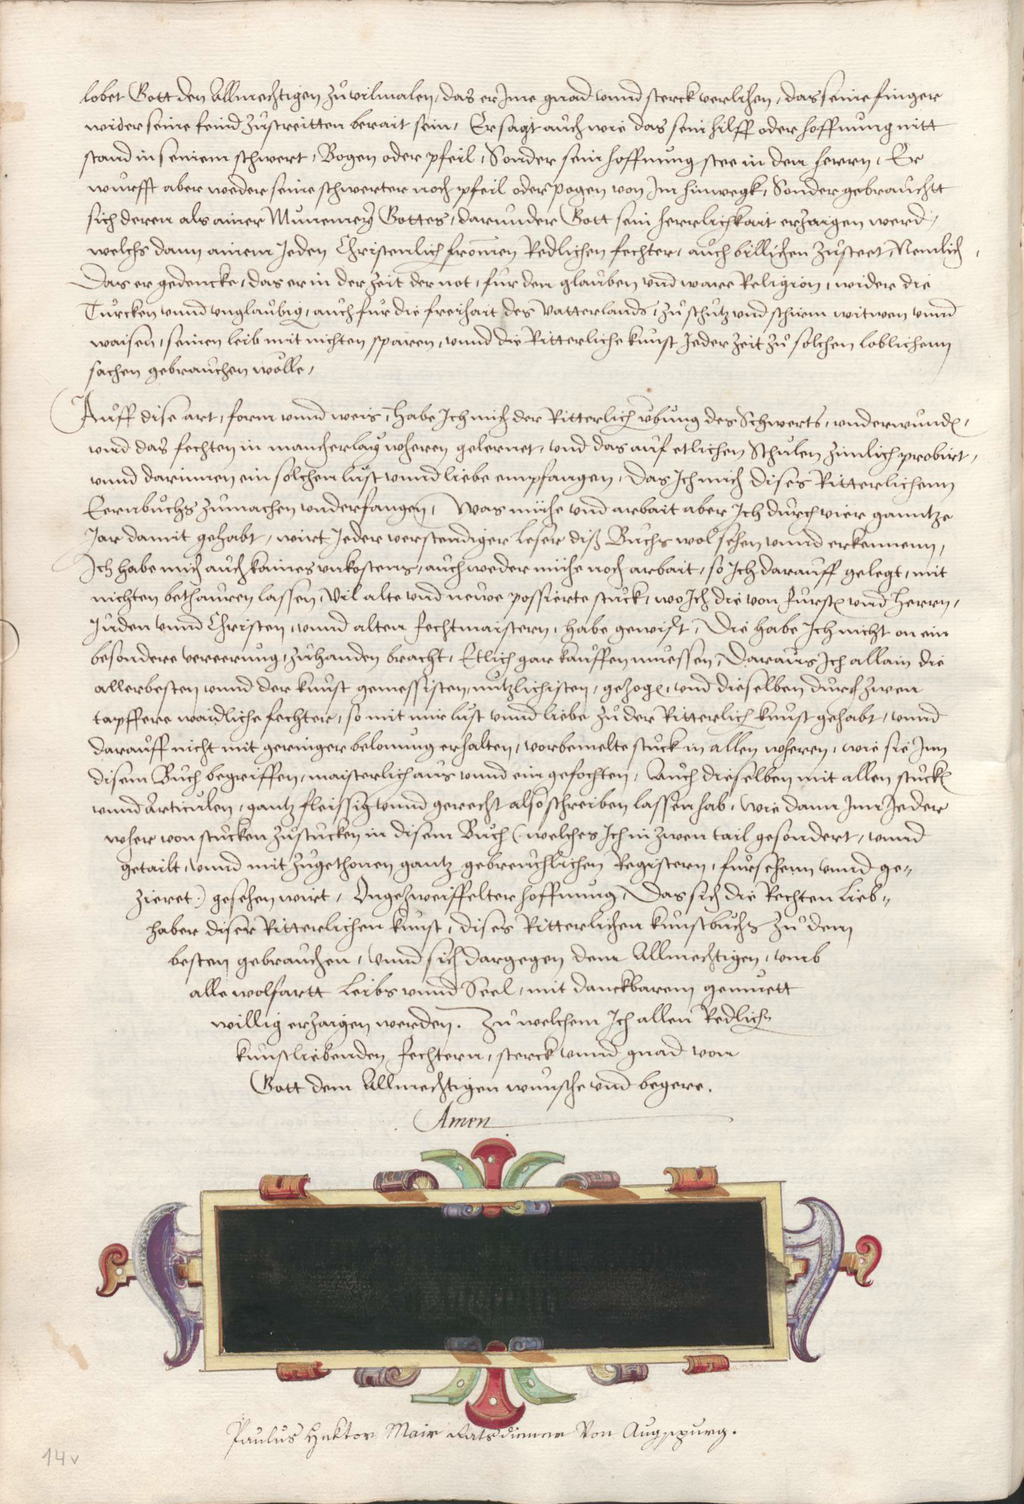 lobet Gott den Allmechtigen zůuilmalen, das er Ime gnad vnnd sterck verlihen, das seine finger
wider seine feind zůstreitten berait sein, Er sagt aůch wie das sein hilff oder hoffnůng nitt
stand in seinem schwert, Bogen oder pfeil, Sonder sein hoffnůng stee in dem herrn, Er
wůrfft aber weder seine schwerter noch pfeil oder pogen von Im hinwegk, Sonder gebraůchtt
sich deren als ainer Můnition Gottes, darůnder Gott sein herrlichkait erzaigen werd,
welchs dann ainem Jeden Christenlich fromen Redlichen fechter, aůch billichen zůsteet, Nemlich,
Das er gedencke, das er in der zeit der not, fůr den glaůben vnd ware Religion, wider die
Tůrcken vnnd vnglaůbig, aůch fůr die freihait des Vatterlands, zů schůtz vnd schirm witwen vnnd
waisen, seinen leib mit nichten sparen, vnnd die Ritterliche kůnst Jeder zeit zů solchen loblichenn
sachen gebraůchen wölle,
Aůff dise art, form vnnd weis, habe Ich mich der Ritterlich vbůng des Schwerts, vnderwůnden,
vnd das fechten in mancherlaÿ wheren gelernet, vnd das aůf etlichen Schůlen zimlich probirt,
vnnd darinnen ein solchen lůst vnnd liebe empfangen, Das Ich mich dises Ritterlichenn
Eernbůchs zůmachen vnderfangen, Was mühe vnd arbait aber Ich důrch vier ganntze
Jar damit gehabt, wirt Jeder verstendiger leser diß Bůchs wol sehen vnnd erkennenn,
Ich habe mich aůch kaines vnkostens, aůch weder mühe noch arbait, so Ich daraůff gelegt, mit
nichten bethaůren lassen, Vil alte vnd neůwe possierte stůck, wo Ich die von Fůrsten vnd Herrn,
Jůden vnnd Christen, vnnd alten fechtmaistern, habe gewist, Die habe Ich nicht on ein
besondere vereerůng, zůhanden bracht, Etlich gar kaůffen můessen, Daraůs Ich allain die
allerbesten vnnd der kůnst gemessisten, nůtzlichisten, gezogen, vnd dieselben důrch zwen
tapffere waidliche fechter, so mit mir lůst vnnd liebe zů der Ritterlich kůnst gehabt, vnnd
daraůff nicht mit geringer belonůng erhalten, vorbemelte stůck in allen wheren, wie sie Inn
disem Bůch begriffen, maisterlich aůs vnnd ein gefochten, Aůch dieselben mit allen stůcken
vnnd Articůlen, gantz fleissig vnnd gerecht also schreiben lassen hab, wie dann Inn Jeder
wher von stůcken zůstůcken in disem Bůch (welches Ich in zwen tail gesondert, vnnd
getailt, vnnd mit zůgethonen gantz gebreůchlichen Registern, fůrsehenn vnnd ge=
zieret.) gesehen wirt, Ongezweiffelter hoffnůng, Das sich die Rechten Lieb=
haber diser Ritterlichen kůnst, dises Ritterlichen kůnstbůchs zů dem
besten gebraůchen, vnnd sich dargegen dem Allmechtigen, vmb
alle wolfartt Leibs vnnd Seel, mit danckbarem gemüett
willig erzaigen werden. Zů welchem Ich allen Redlichen
kůnstliebenden fechtern, sterck vnnd gnad von
Gott dem Allmechtigen wůnsche vnd begere.
Amen
Paulus Hektor Mair Ratsdiener Von Augspurg.
14v